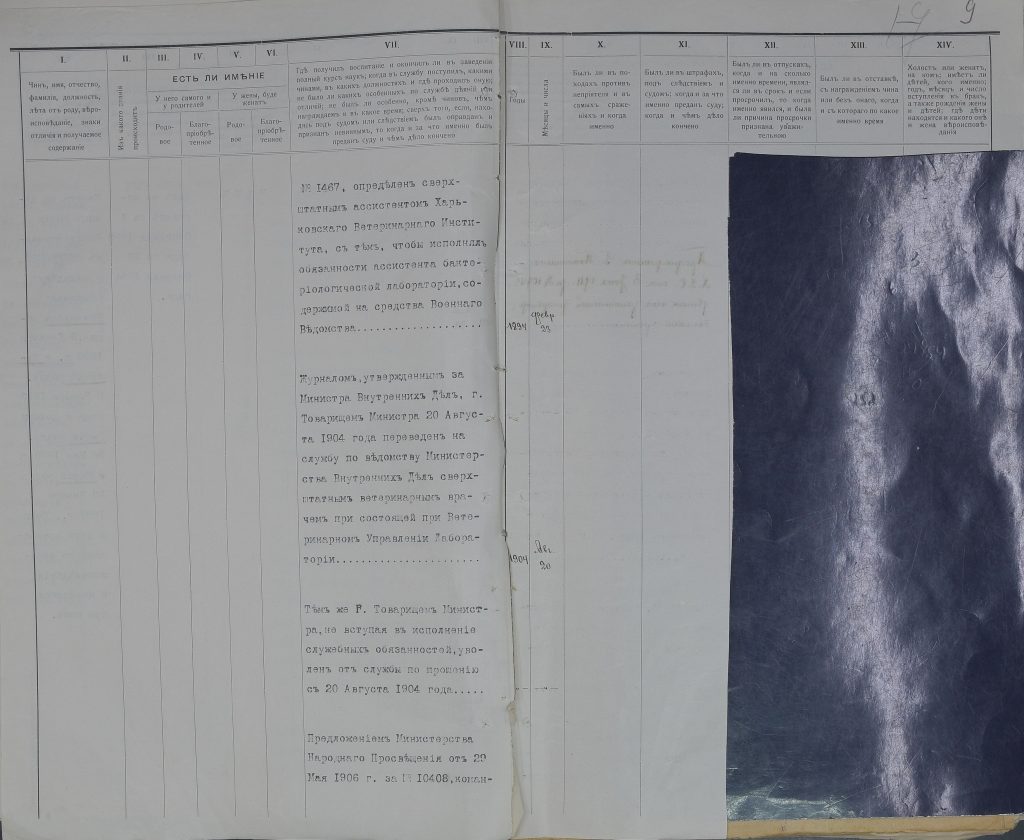 9
I.
II.
III.
IV.
V.
VI.
VII.
VIII.
IX.
X.
XI.
XII.
XIII.
XIV.
Чинъ, имя, отчество,
фамилія, должность,
лѣта отъ роду, вѣро-
исповѣданіе, знаки
отличія и получаемое
содержаніе
Изъ какого званія
происходитъ
ЕСТЬ ЛИ ИМѢНІЕ
У него самого и
у родителей
У жены, буде
женатъ
Родо-
вое
Благо-
пріобрѣ-
тенное
Родо-
вое
Благо-
пріобрѣ-
тенное
Гдѣ получилъ воспитаніе и окончилъ ли въ заведеніи
полный курсъ наукъ; когда въ службу поступилъ, какими
чинами, въ какихъ должностяхъ и гдѣ проходилъ оную;
не было ли какихъ особенныхъ по службѣ дѣяній или
отличій; не былъ ли особенно, кромѣ чиновъ, чѣмъ
награждаемъ и въ какое время; сверхъ того, если, нахо-
дясь подъ судомъ или слѣдствіемъ былъ оправданъ и
признанъ невиннымъ, то когда и за что именно былъ
преданъ суду и чѣмъ дѣло кончено
Годы
Мѣсяцы и числа
Былъ ли въ по-
ходахъ противъ
непріятеля и въ
самыхъ сраже-
ніяхъ и когда
именно
Былъ ли въ штрафахъ,
подъ слѣдствіемъ и
судомъ; когда и за что
именно преданъ суду;
когда и чѣмъ дѣло
кончено
Былъ ли въ отпускахъ,
когда и на сколько
именно времени, являл-
ся ли въ срокъ и если
просрочилъ, то когда
именно явился, и была
ли причина просрочки
признана уважи-
тельною
Былъ ли въ отставкѣ,
съ награжденіемъ чина
или безъ онаго, когда
и съ котораго по какое
именно время
Холостъ или женатъ,
на комъ; имѣетъ ли
дѣтей, кого именно;
годъ, мѣсяцъ и число
вступленія въ бракъ,
а также рожденія жены
и дѣтей; гдѣ дѣти
находятся и какого онѣ
и жена вѣроисповѣ-
данія
№ 1467, опредѣленъ сверх-
штатнымъ ассистентомъ Харь-
ковскаго Ветеринарнаго Инсти-
тута, съ тѣмъ, чтобы исполнялъ
обязанности ассистента бакте-
ріологической лабораторіи,со-
держимой на средства Военнаго
Вѣдомства...................
1894
февр.
23
Журналомъ,утвержденнымъ за
Министра Внутреннихъ Дѣлъ, г.
Товарищемъ Министра 20 Авгус-
та 1904 года переведенъ на
службу по вѣдомству Министер-
ства Внутреннихъ Дѣлъ сверх-
штатнымъ ветеринарнымъ вра-
чемъ при состоящей при Вете-
ринарномъ Управленіи Лабора-
торіи......................
1904
Авг.
20
Тѣмъ же Г. Товарищемъ Минист-
ра,не вступая въ исполненіе
служебныхъ обязанностей,уво-
ленъ отъ службы по прошенію
съ 20 Августа 1904 года.....
Предложеніемъ Министерства
Народнаго Просвѣщенія отъ 29
Мая 1906 г. за № 10408,коман-